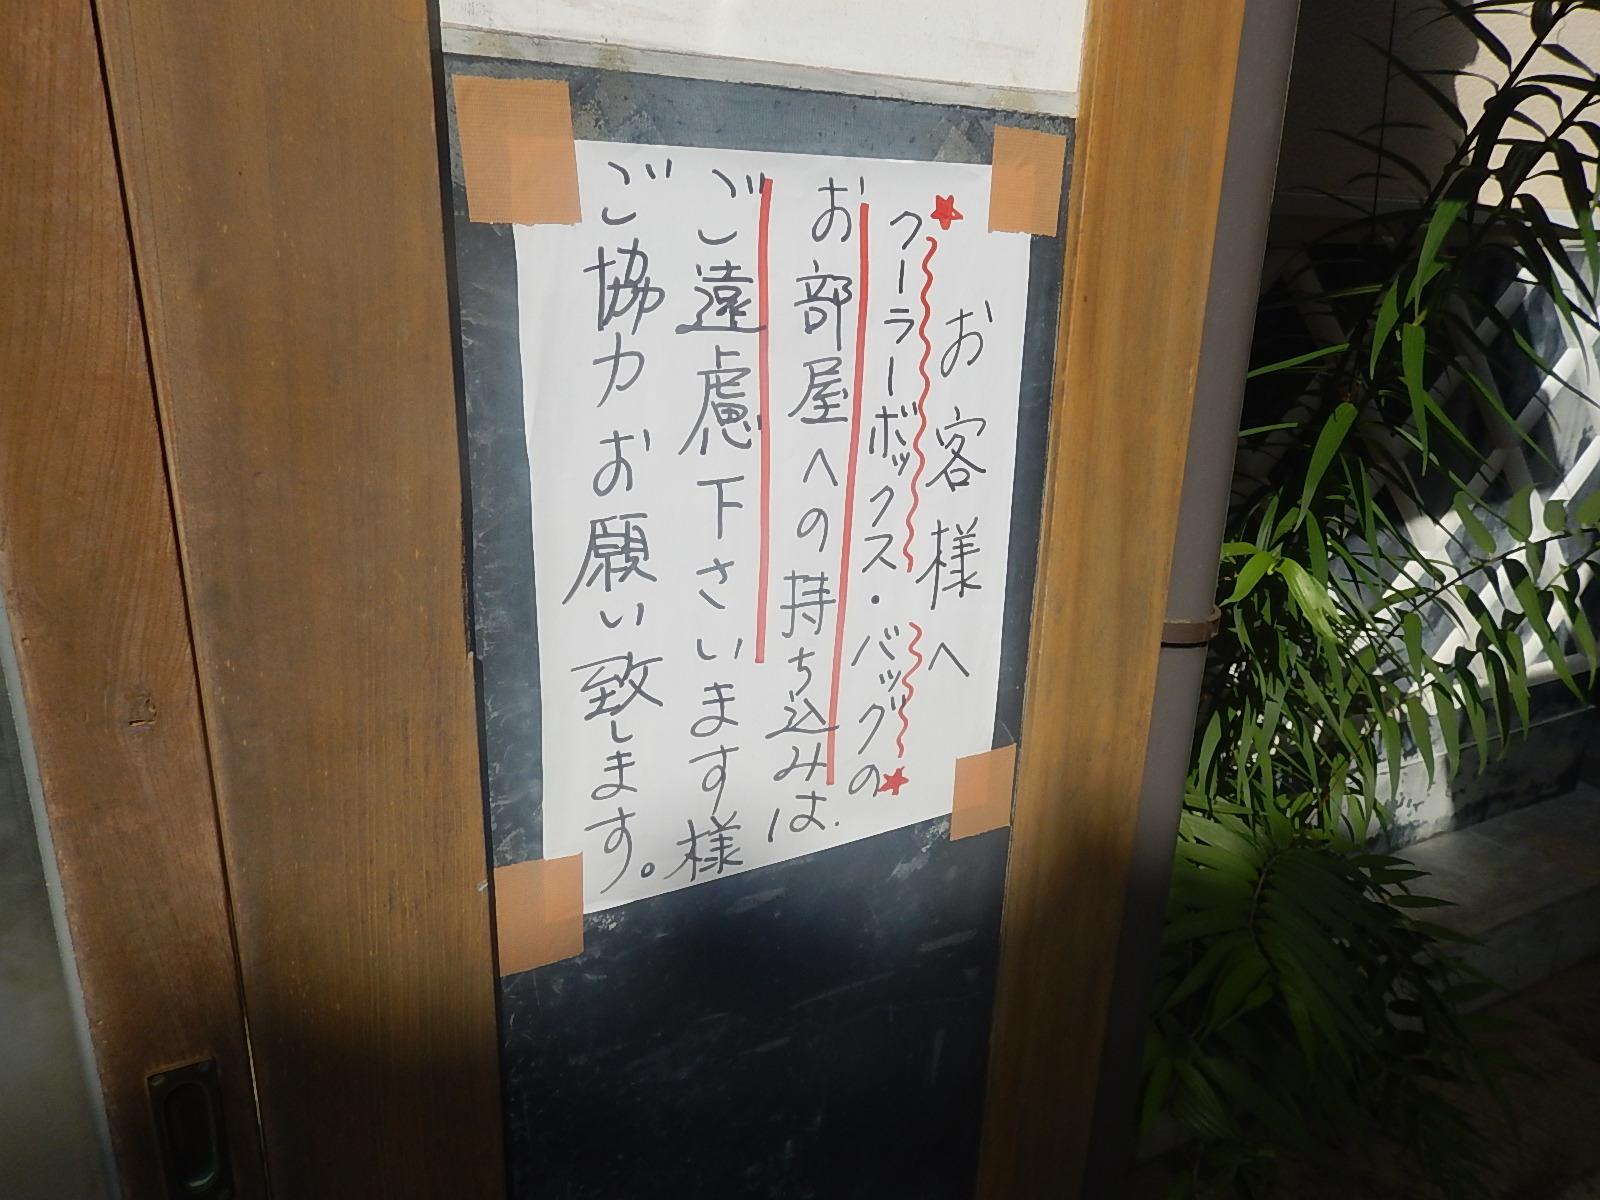 お客様へ
★クーラーボックス・バッグの★
お部屋への持ち込みは.
ご遠慮下さいます様
ご協力お願い致します。